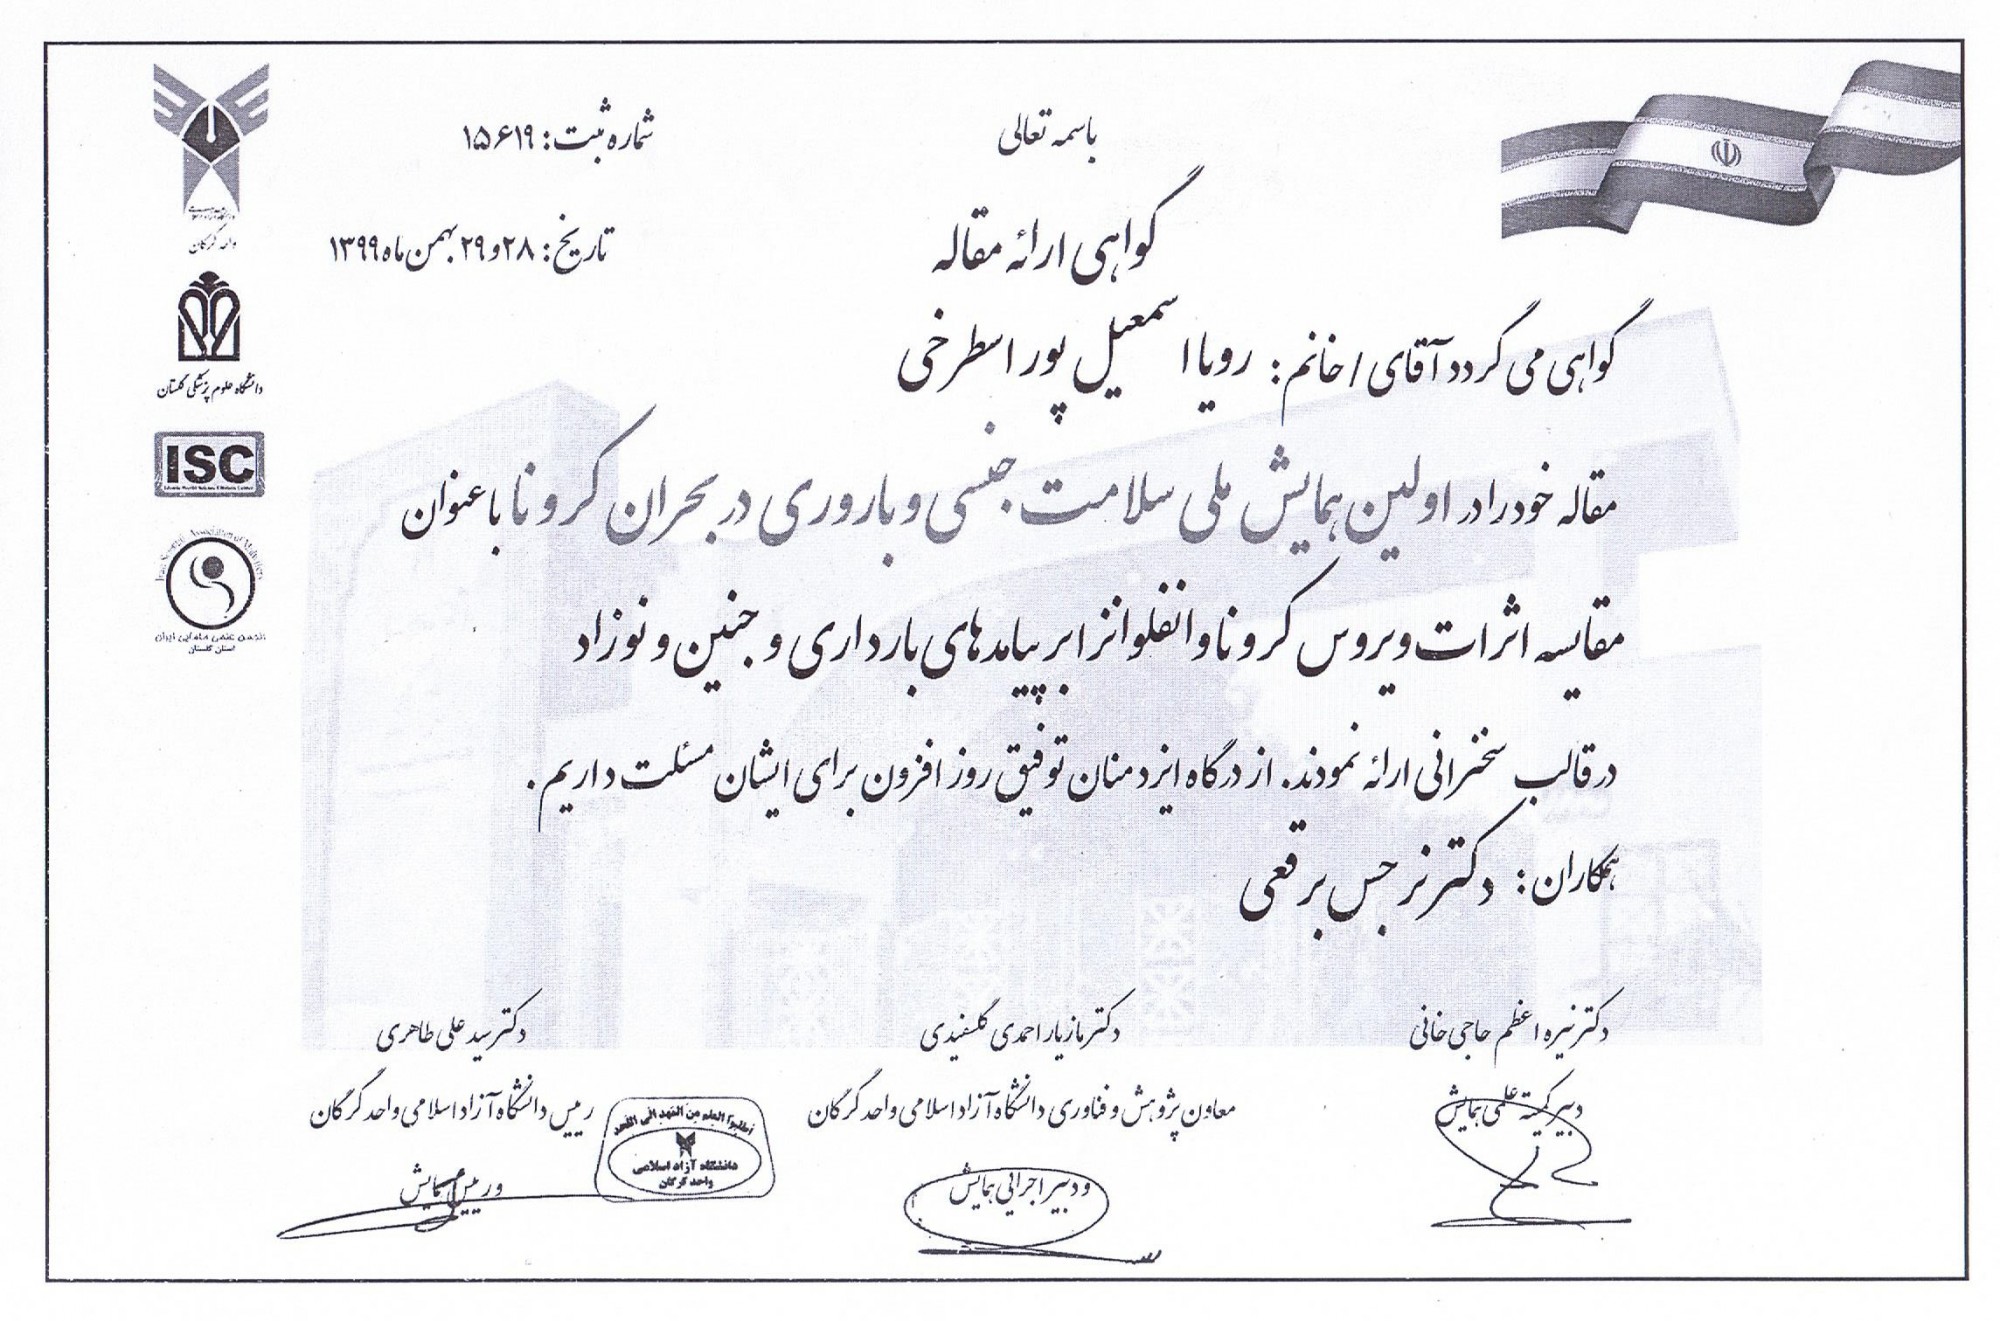 باسمه تعالی
شماره ثبت: ۱۵۶۱۹
گواهی ارائه مقاله
تاریخ: ۲۸ و ۲۹ بهمن ماه ۱۳۹۹
گواهی می گردد آقای / خانم: رویا اسمعیل پور اسطرخی
مقاله خود را در اولین همایش ملی سلامت جنسی و باروری در بحران کرونا با عنوان
مقایسه اثرات ویروس کرونا و انفلوانزا بر پیامدهای بارداری و جنین و نوزاد
در قالب سخنرانی ارائه نمودند. از درگاه ایزد منان توفیق روز افزون برای ایشان مسئلت داریم.
همکاران: دکتر نرجس برقعی
دکتر نیره اعظم حاجی خانی
دبیر کمیته علمی همایش
دکتر مازیار احمدی گلسفیدی
معاون پژوهش و فناوری دانشگاه آزاد اسلامی واحد گرگان
و دبیر اجرایی همایش
دکتر سید علی طاهری
رییس دانشگاه آزاد اسلامی واحد گرگان
و رییس همایش
اطلبوا العلم من المهد الی اللحد
دانشگاه آزاد اسلامی
واحد گرگان
واحد گرگان
دانشگاه علوم پزشکی گلستان
ISC
انجمن علمی مامایی ایران
استان گلستان